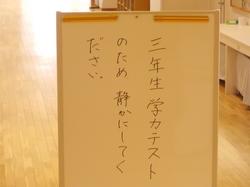 三年生 学力テスト
のため 静かにしてく
ださい。